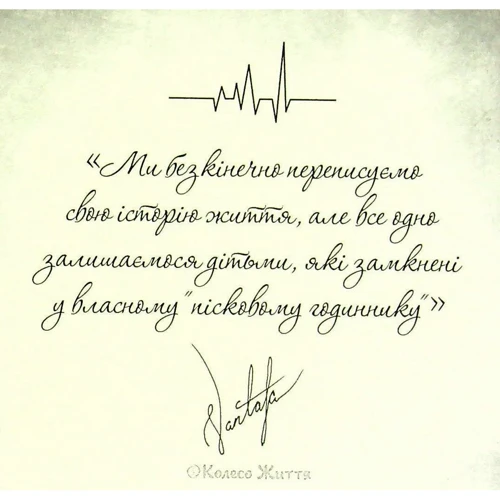 «Ми безкінечно переписуємо
свою історію життя, але все одно
залишаємося дітьми, які замкнені
у власному "пісковому годиннику"»
Vantala
©Колесо Життя